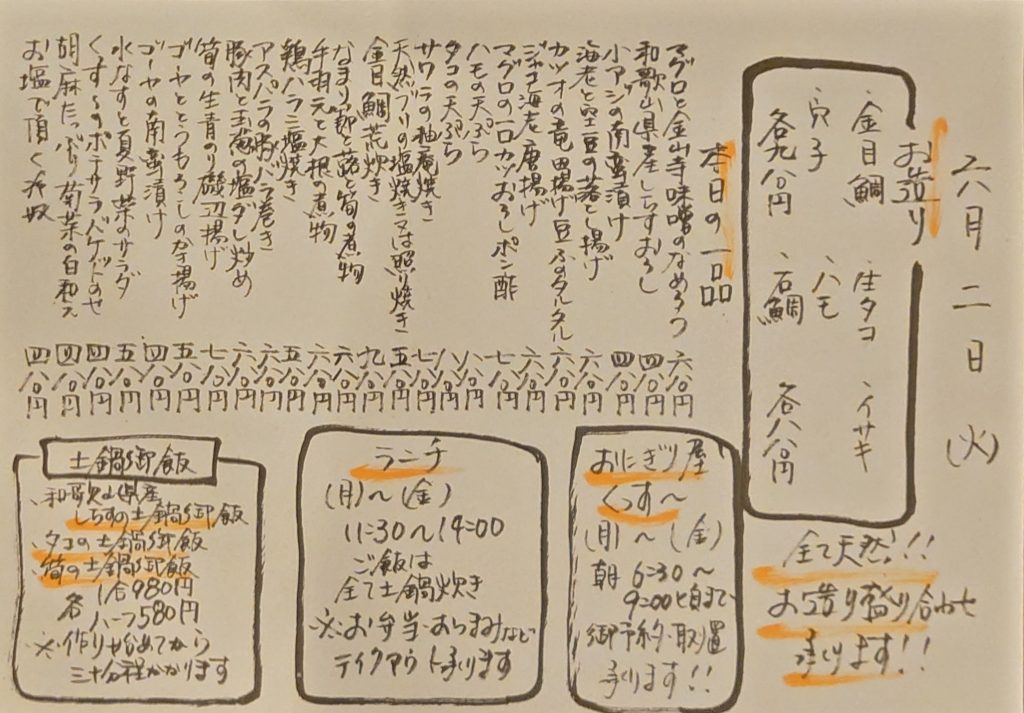 六月二日(火)
お造り
・金目鯛 ・生タコ ・イサキ
・穴子 ・ハモ
各九八〇円 ・石鯛 各八八〇円
本日の一品
マグロと金山寺味噌のなめろう 六八〇円
和歌山県産しらすおろし 四八〇円
小アジの南蛮漬け 四八〇円
海老と空豆の落とし揚げ 六八〇円
カツオの竜田揚げ豆ふのタルタル 六八〇円
ジャコ海老唐揚げ 六八〇円
マグロの一口カツおろしポン酢 七八〇円
ハモの天ぷら 八八〇円
タコの天ぷら 八八〇円
サワラの柚庵焼き 七八〇円
天然ブリの塩焼き又は照り焼き 五八〇円
金目鯛荒炊き 九八〇円
なまり節と蕗と筍の煮物 六八〇円
手羽元と大根の煮物 六八〇円
鶏ハラミ塩焼き 五八〇円
アスパラの豚バラ巻き 六八〇円
豚肉と玉葱の塩ダレ炒め 六八〇円
筍の生青のり磯辺揚げ 七八〇円
ゴーヤととうもろこしのかき揚げ 五八〇円
ゴーヤの南蛮漬け 四八〇円
水なすと夏野菜のサラダ 五八〇円
くす〜のポテサラバゲットのせ 四八〇円
胡麻たっぷり菊菜の白和え 四八〇円
お塩で頂く冷奴 四八〇円
全て天然!!
お造り盛り合わせ
承ります!!
おにぎり屋
くっす〜
(月)〜(金)
朝6:30〜
9:00頃まで
御予約・取置
承ります!!
ランチ
(月)〜(金)
11:30〜14:00
ご飯は
全て土鍋炊き
※お弁当・おつまみなど
テイクアウト承ります
土鍋御飯
・和歌山県産
しらすの土鍋御飯
・タコの土鍋御飯
・筍の土鍋御飯
各 1合980円
ハーフ580円
※作り始めてから
三十分程かかります